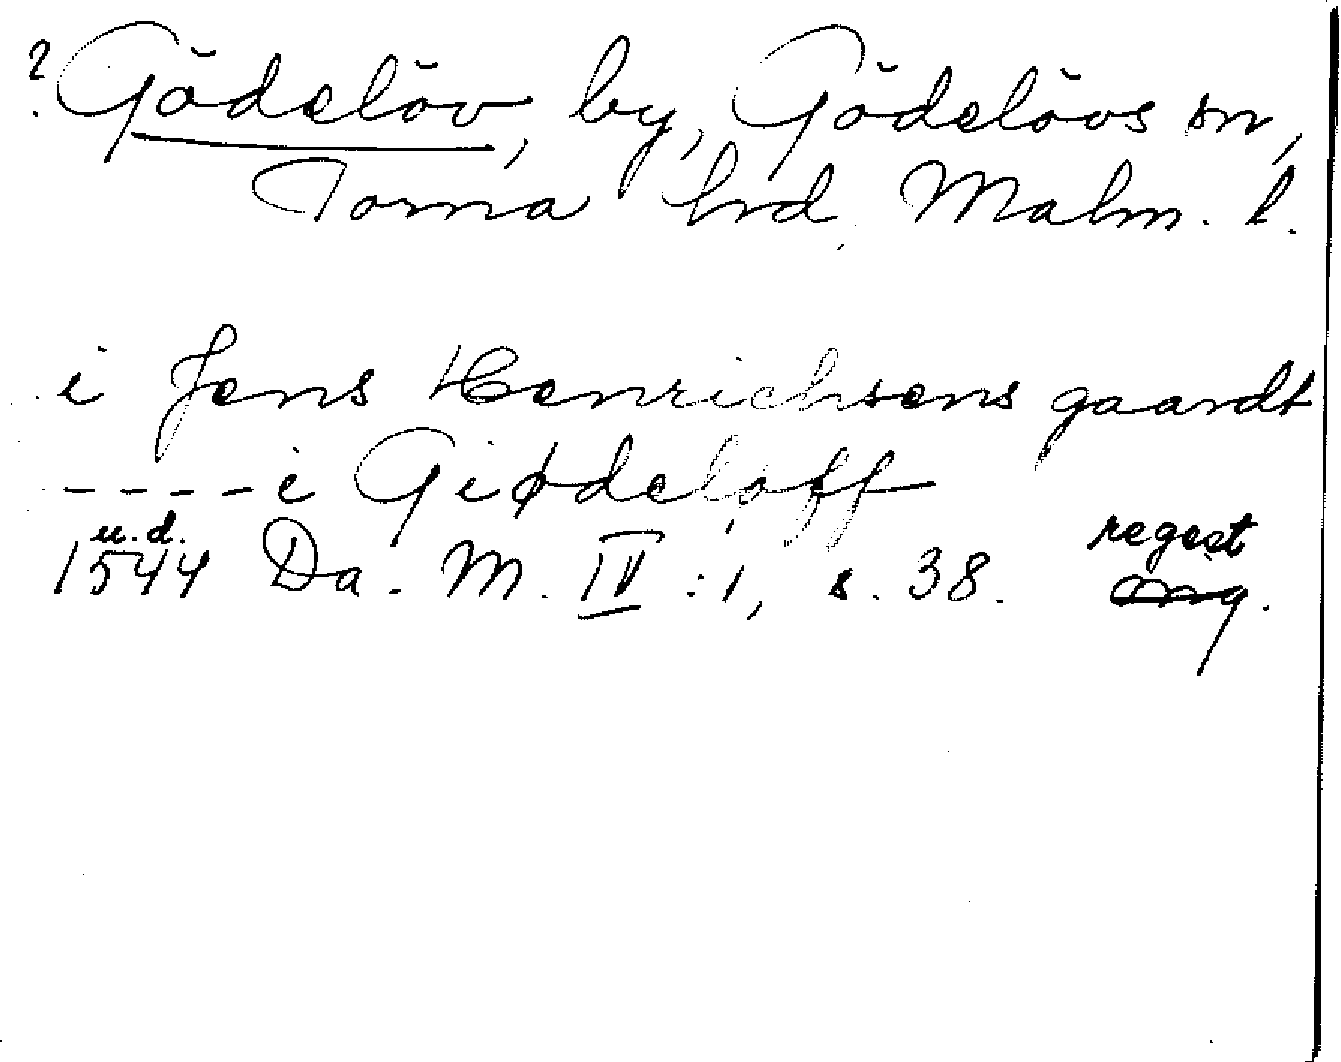 ? Gödelöv, by, Gödelövs sn,
Torna hrd, Malm. l.
i Jens Henrichsens gaardt
- - - - i Giødeløff
u.d. regest
1544 Da. M. IV : 1, s. 38. orig.